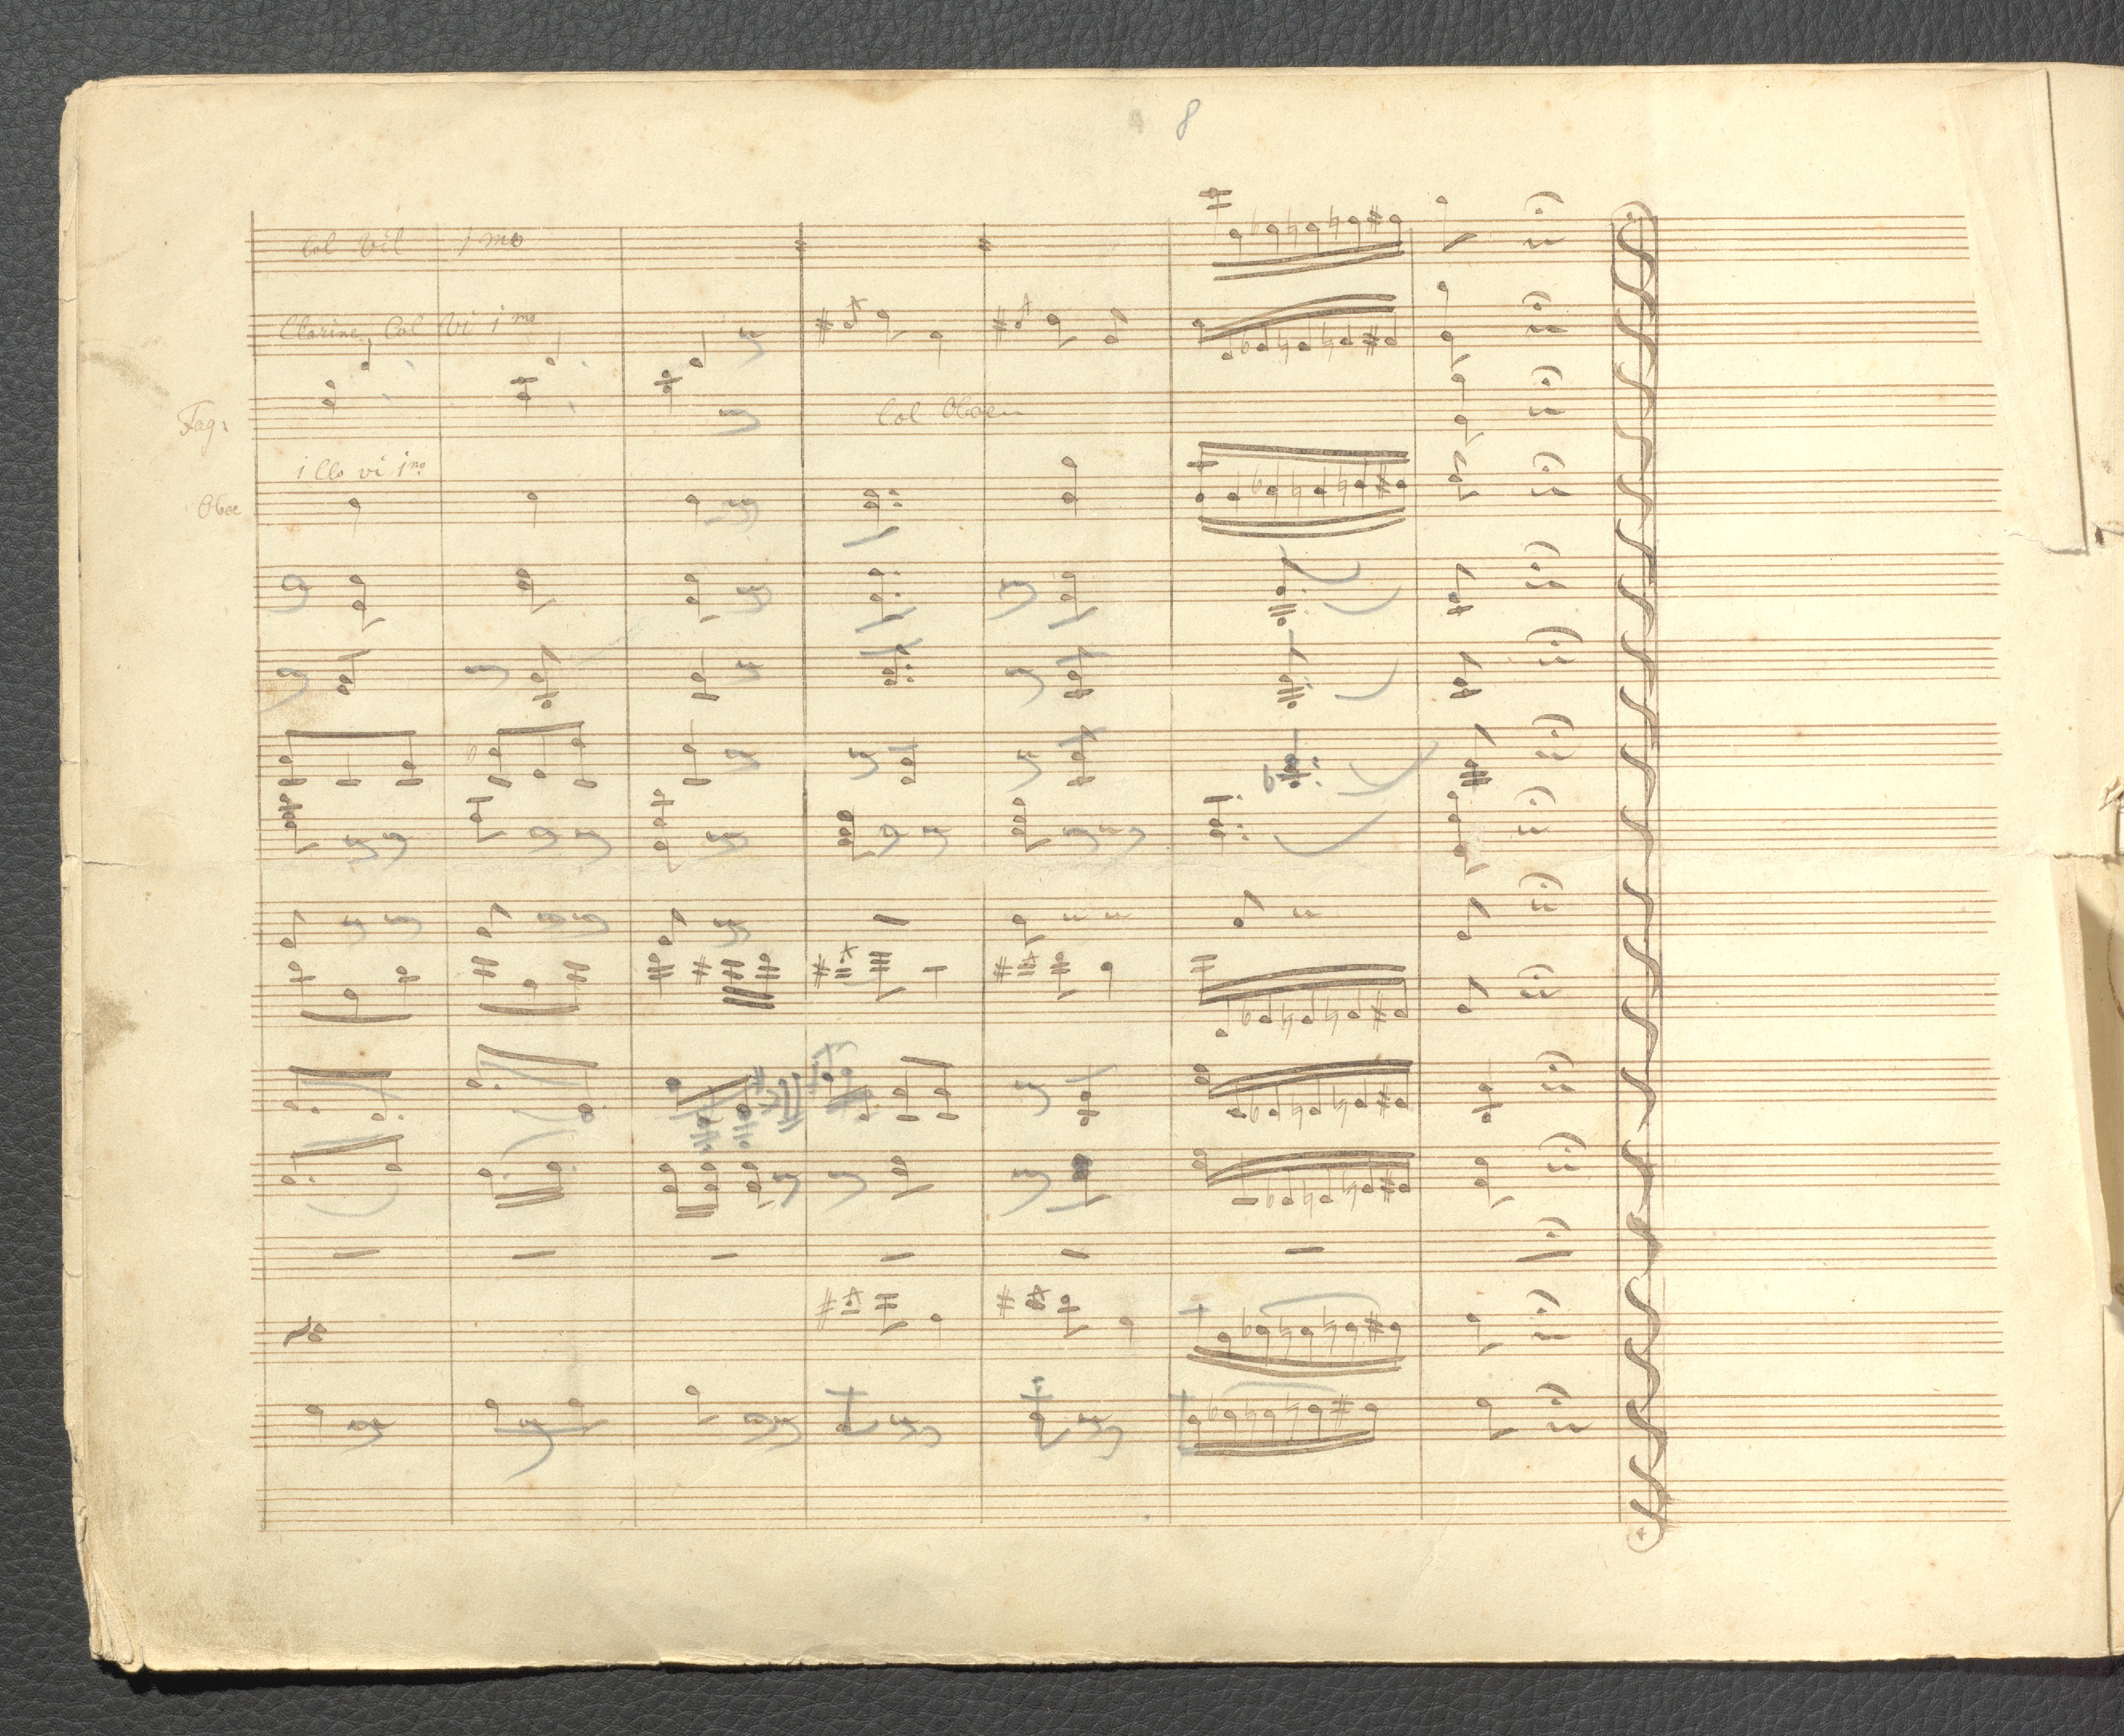 8
Col Vil 1mo
Clarine Col Vi 1mo
Fag:
Col Oboen
1 Clo vi 1mo
Oboe